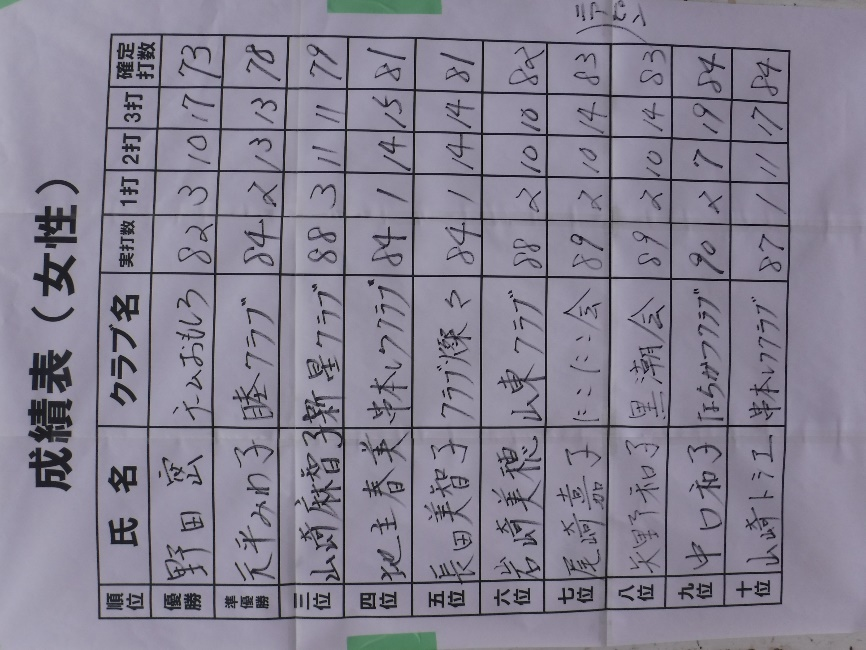 成績表（女性）
順位 氏名 クラブ名 実打数 1打 2打 3打 確定打数
優勝 野田 宏 チームおもしろ 82 3 10 17 73
準優勝 元平みわ子 睦クラブ 84 2 13 13 78
三位 山崎麻智子 新星クラブ 88 3 11 11 79
四位 地主春美 串本レククラブ 84 1 14 15 81
五位 長田美智子 クラブ燦々 84 1 14 14 81
六位 岩崎美穂 山東クラブ 88 2 10 10 82
七位 尾崎嘉子 にこにこ会 89 2 10 14 83
八位 矢野和子 黒潮会 89 2 10 14 83
九位 中口和子 はちかつクラブ 90 2 7 19 84
十位 山崎トミエ 串本レククラブ 87 1 11 17 84